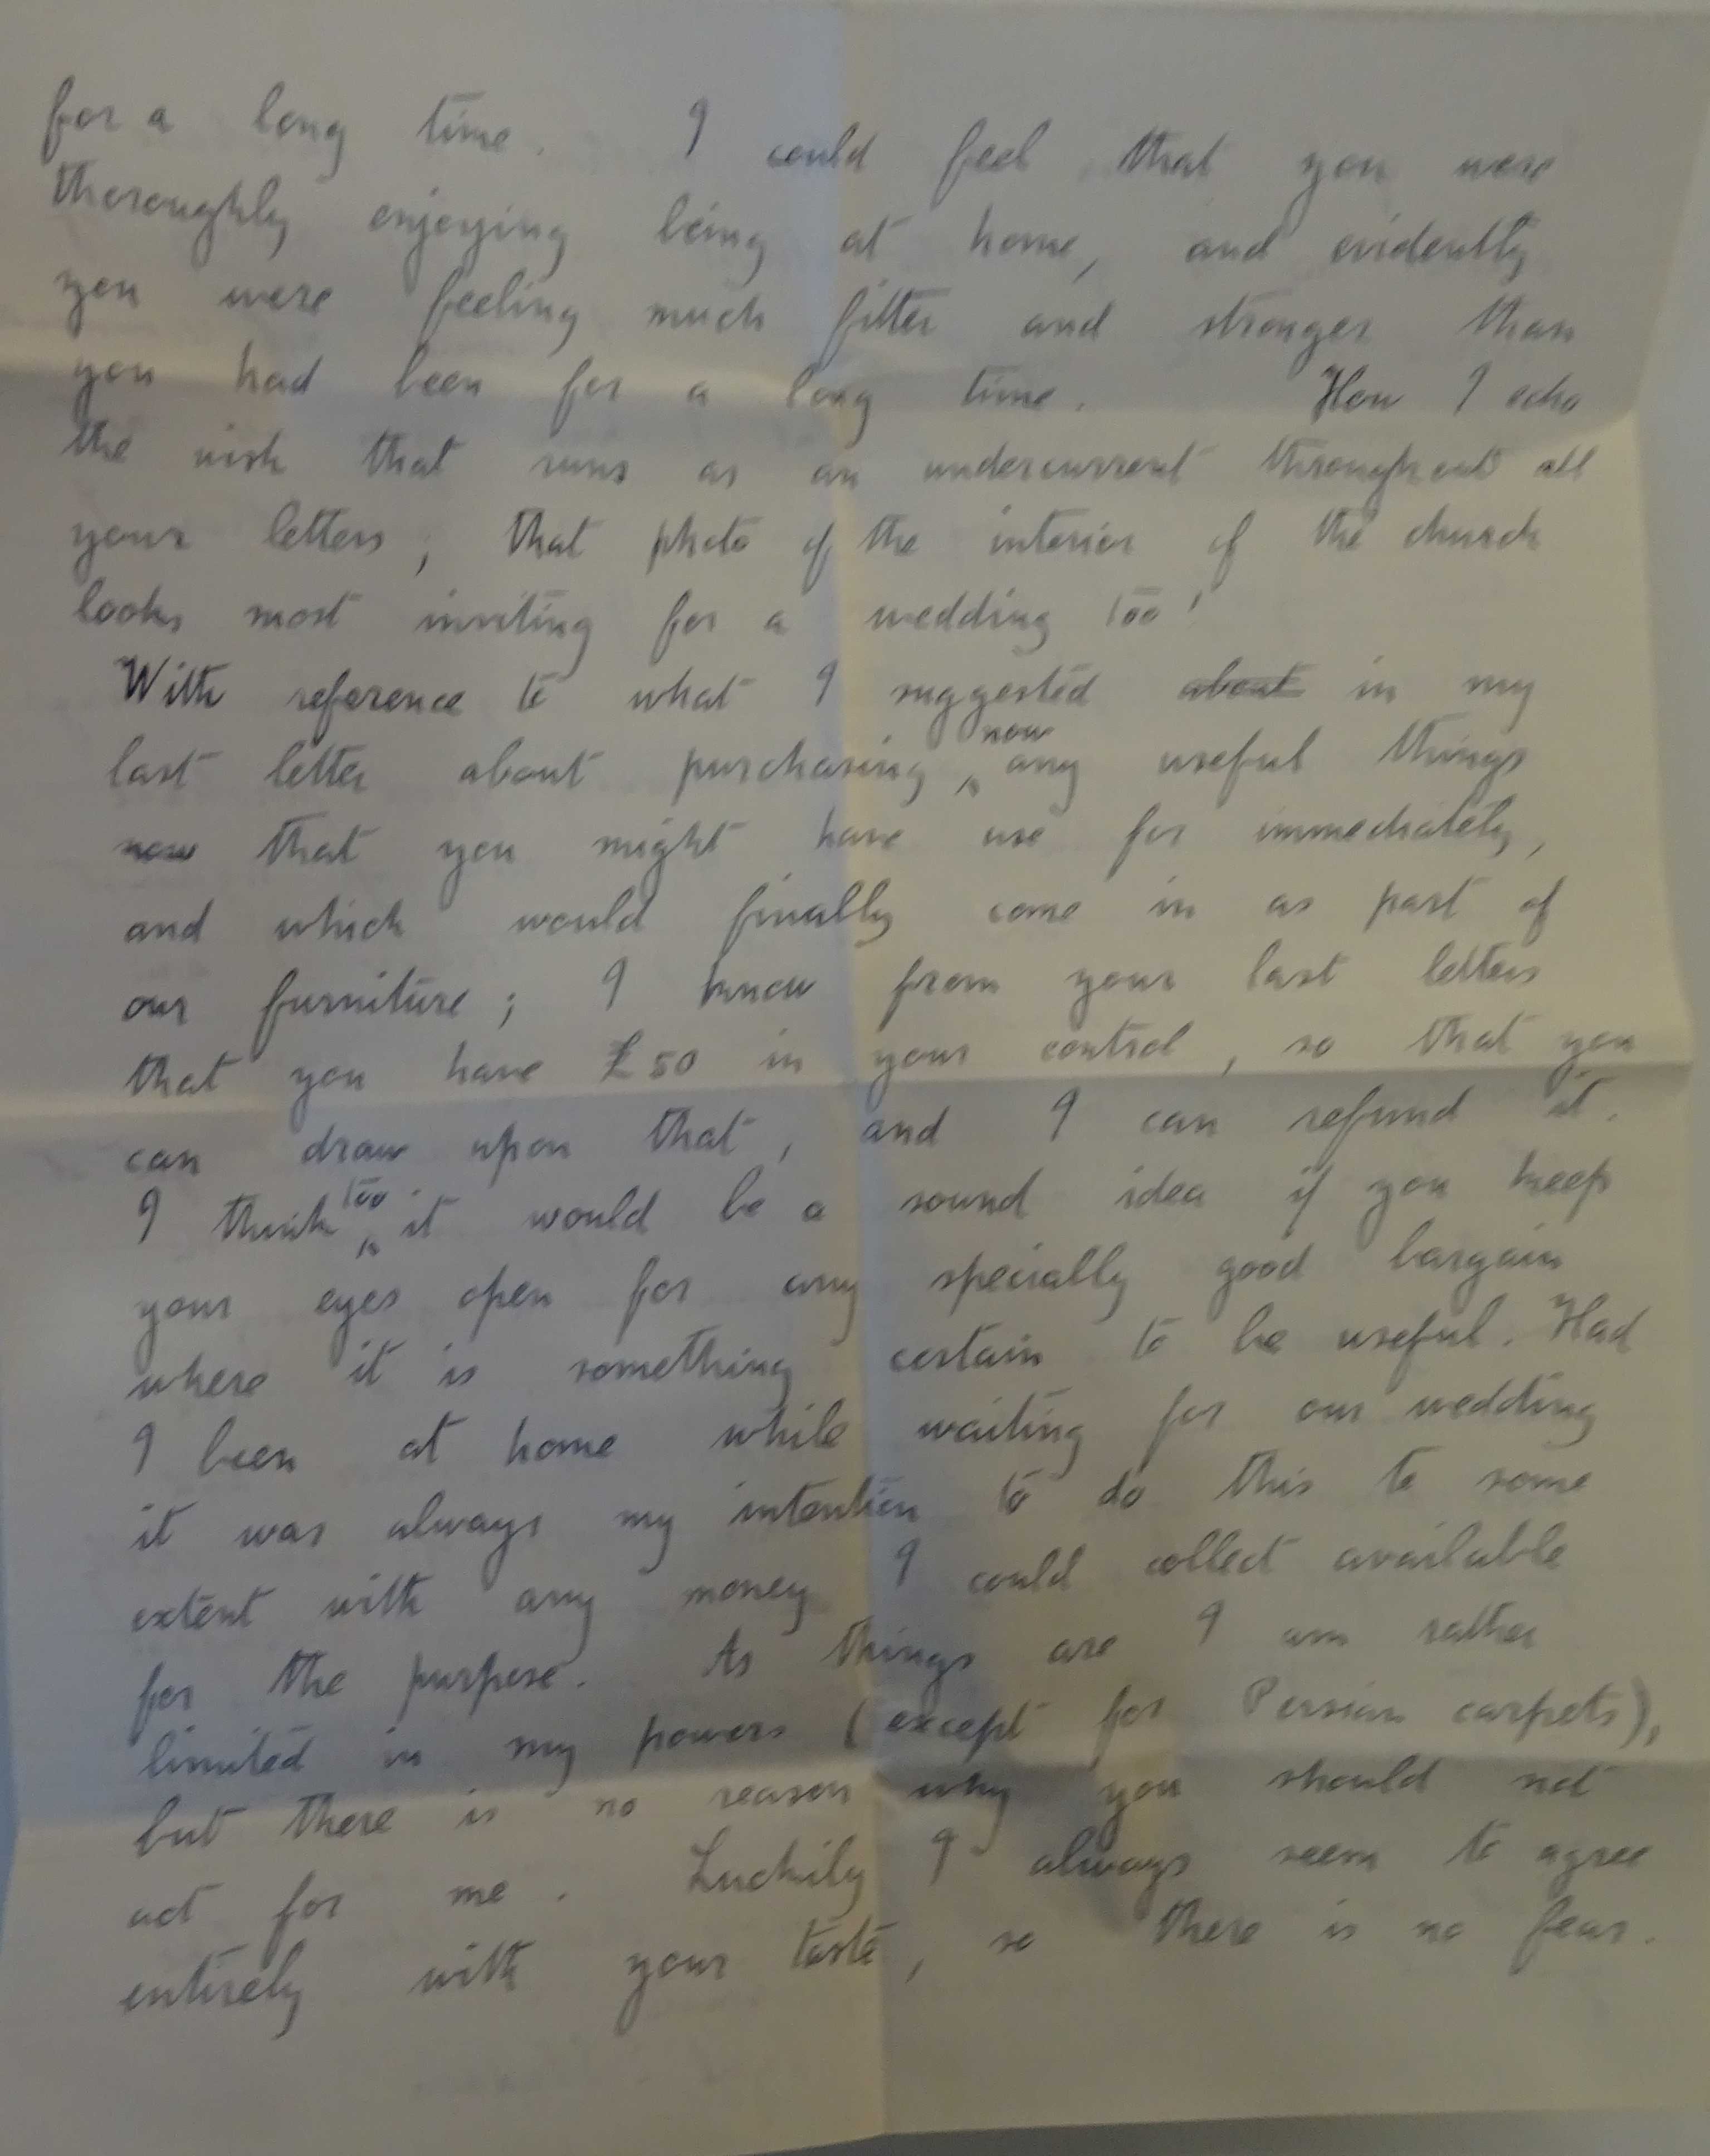 for a long time. I could feel that you were
thoroughly enjoying being at home, and evidently
you were feeling much fitter and stronger than
you had been for a long time. How I echo
the wish that runs as an undercurrent throughout all
your letters; that photo of the interior of the church
looks most inviting for a wedding too!
With reference to what I suggested about in my
now
last letter about purchasing ^ any useful things
now that you might have use for immediately,
and which would finally come in as part of
our furniture; I know from your last letters
that you have £50 in your control, so that you
can draw upon that, and I can refund it.
too
I think ^ it would be a sound idea if you keep
your eyes open for any specially good bargain
where it is something certain to be useful. Had
I been at home while waiting for our wedding
it was always my intention to do this to some
extent with any money I could collect available
for the purpose. As things are I am rather
limited in my powers (except for Persian carpets),
but there is no reason why you should not
act for me. Luckily I always seem to agree
entirely with your taste, so there is no fear.